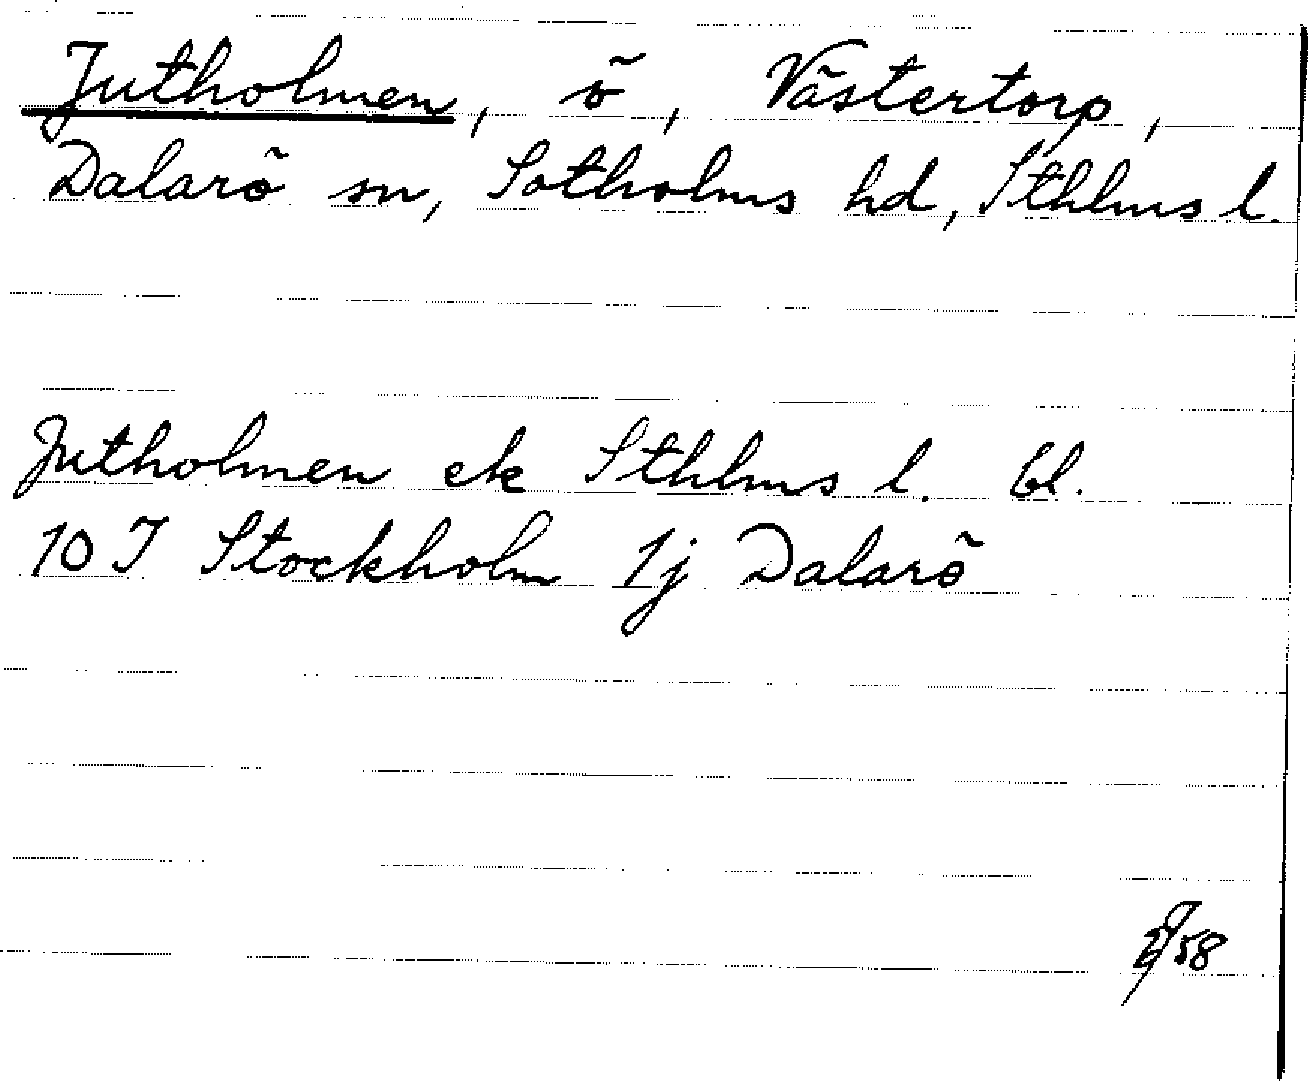 Jutholmen, ö, Västertorp,
Dalarö sn, Sotholms hd, Sthlms l.
Jutholmen ek Sthlms l. bl.
10 I Stockholm 1j Dalarö
58